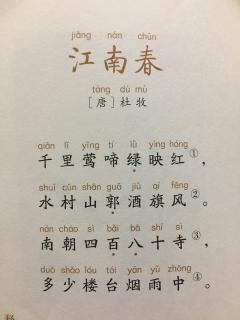 jiāng nán chūn
江南春
táng dù mù
[唐]杜牧
qiān lǐ yīng tí lǜ yìng hóng
千里莺啼绿映红①,
shuǐ cūn shān guō jiǔ qí fēng
水村山郭酒旗风②。
nán cháo sì bǎi bā shí sì
南朝四百八十寺③,
duō shǎo lóu tái yān yǔ zhōng
多少楼台烟雨中④。